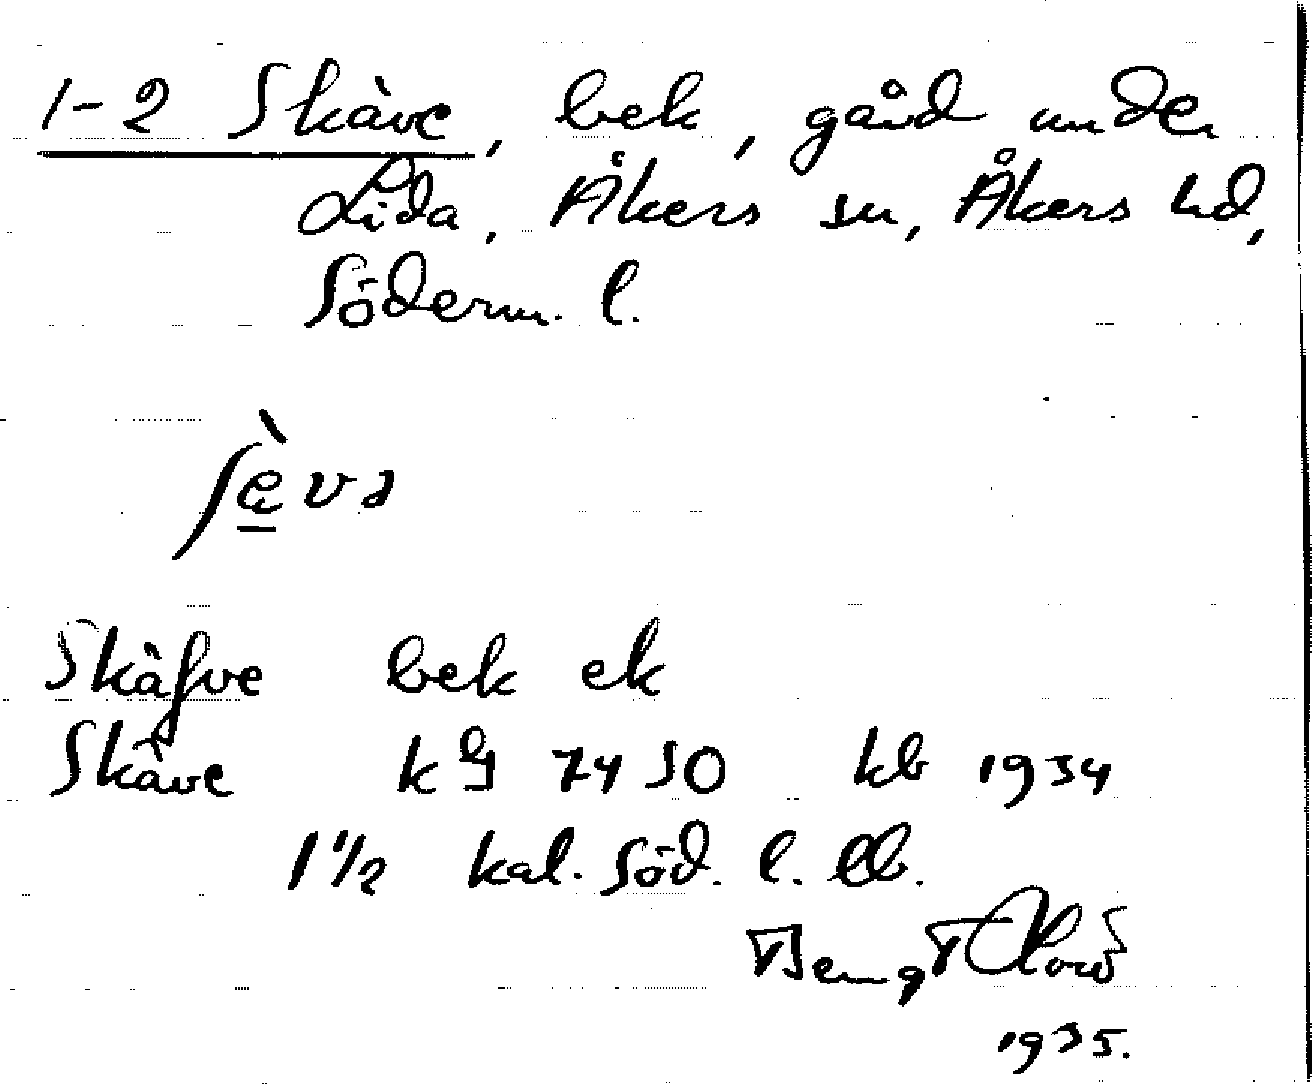 1-2 Skäve, bek, gård under
Lida, Åkers sn, Åkers hd,
Söderm. l.
Skäfve bek ek
Skäve kg 7450 kb 1934
1 1/2 kal. Söd. l. 
Bengt
1935.